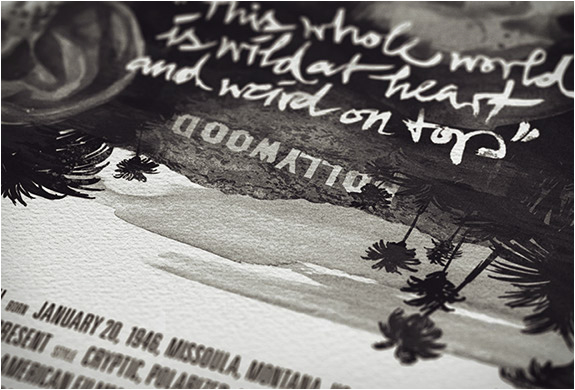 "This whole world
is wild at heart
and weird on top"
HOLLYWOOD
BORN JANUARY 20, 1946, MISSOULA, MONTANA,
PRESENT STYLE CRYPTIC,
AMERICAN